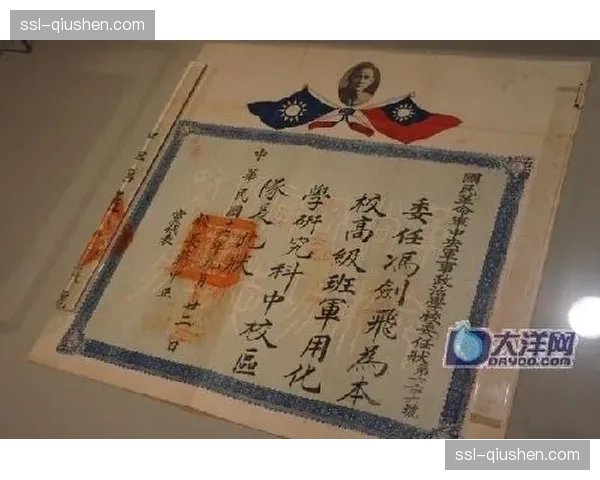 ssl-qiushen.com
國民革命軍中央軍事政治學校委任狀第
委任馮劍飛為本
校高級班軍用化
學研究科中校區
隊長此狀
中華民國十
月廿二日
大洋网
DAYOO.COM
ssl-qiushen.com